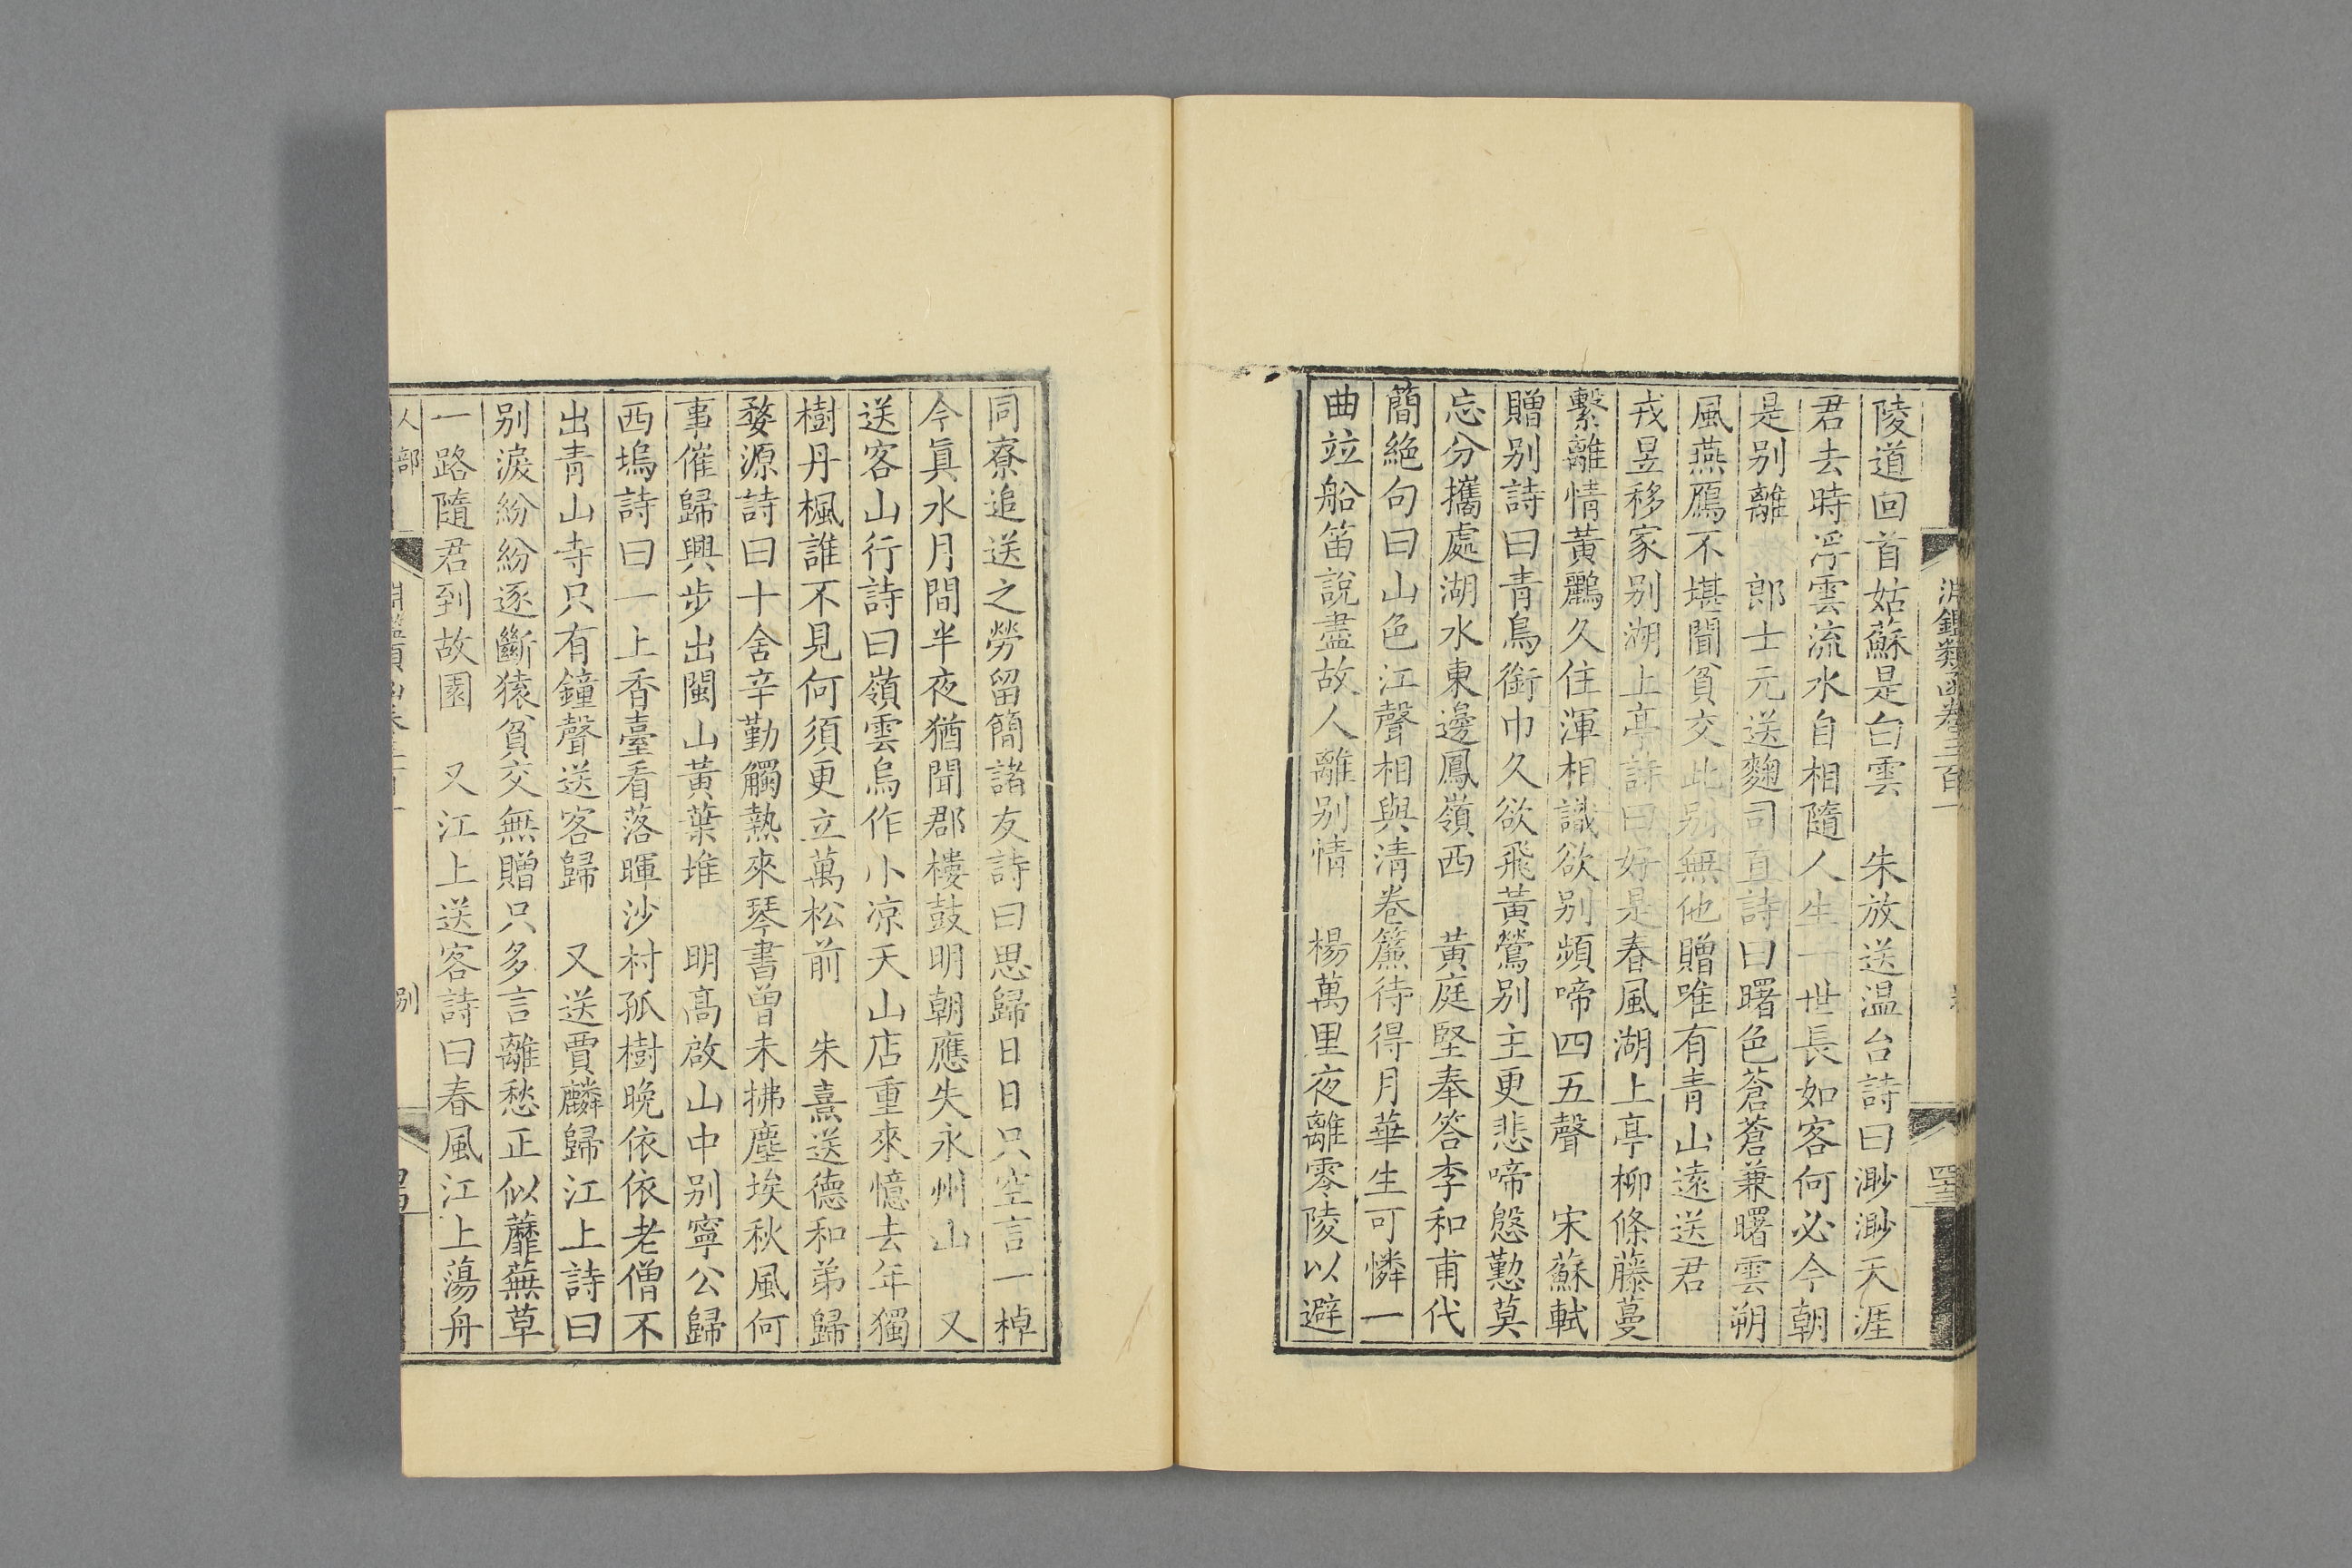 淵鑑類函卷三百一
陵道回首姑蘇是白雲　朱放送温台詩曰渺渺天涯
君去時浮雲流水自相隨人生一世長如客何必今朝
是别離　郎士元送麴司直詩曰曙色蒼蒼兼曙雲朔
風燕鴈不堪聞貧交此别無他贈唯有青山遠送君
戎昱移家别湖上亭詩曰好是春風湖上亭柳條藤蔓
繫離情黃鸝久住渾相識欲别頻啼四五聲　宋蘇軾
贈别詩曰青鳥銜巾久欲飛黃鶯别主更悲啼慇懃莫
忘分攜處湖水東邊鳳嶺西　黃庭堅奉答李和甫代
簡絶句曰山色江聲相與清卷簾待得月華生可憐一
曲竝船笛說盡故人離别情　楊萬里夜離零陵以避
同寮追送之勞留簡諸友詩曰思歸日日只空言一棹
今眞水月間半夜猶聞郡樓鼓明朝應失永州山　又
送客山行詩曰嶺雲烏作小凉天山店重來憶去年獨
樹丹楓誰不見何須更立萬松前　朱熹送德和弟歸
婺源詩曰十舍辛勤觸熱來琴書曾未拂塵埃秋風何
事催歸興步出閩山黃葉堆　明高啟山中别寧公歸
西塢詩曰一上香臺看落暉沙村孤樹晚依依老僧不
出青山寺只有鐘聲送客歸　又送賈麟歸江上詩曰
别淚紛紛逐斷猿貧交無贈只多言離愁正似蘼蕪草
一路隨君到故園　又江上送客詩曰春風江上蕩舟
人部
别